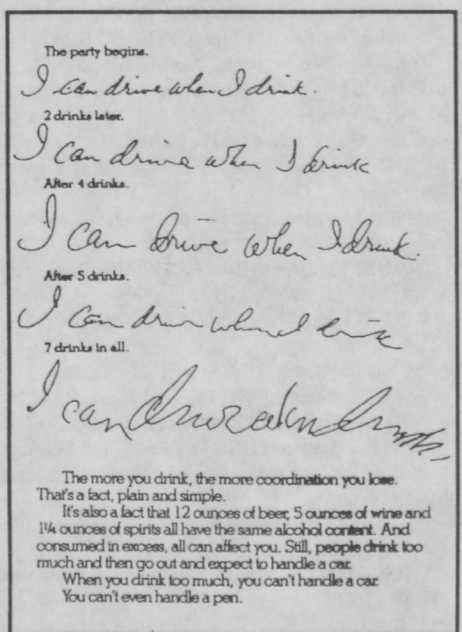 The party begins.
I can drive when I drink.
2 drinks later.
I can drive when I drink
After 4 drinks.
I can drive when I drink.
After 5 drinks.
I can drive when I drink
7 drinks in all.
I can drive when I drink
The more you drink, the more coordination you lose.
That's a fact, plain and simple.
It's also a fact that 12 ounces of beer, 5 ounces of wine and
1¼ ounces of spirits all have the same alcohol content. And
consumed in excess, all can affect you. Still, people drink too
much and then go out and expect to handle a car.
When you drink too much, you can't handle a car.
You can't even handle a pen.